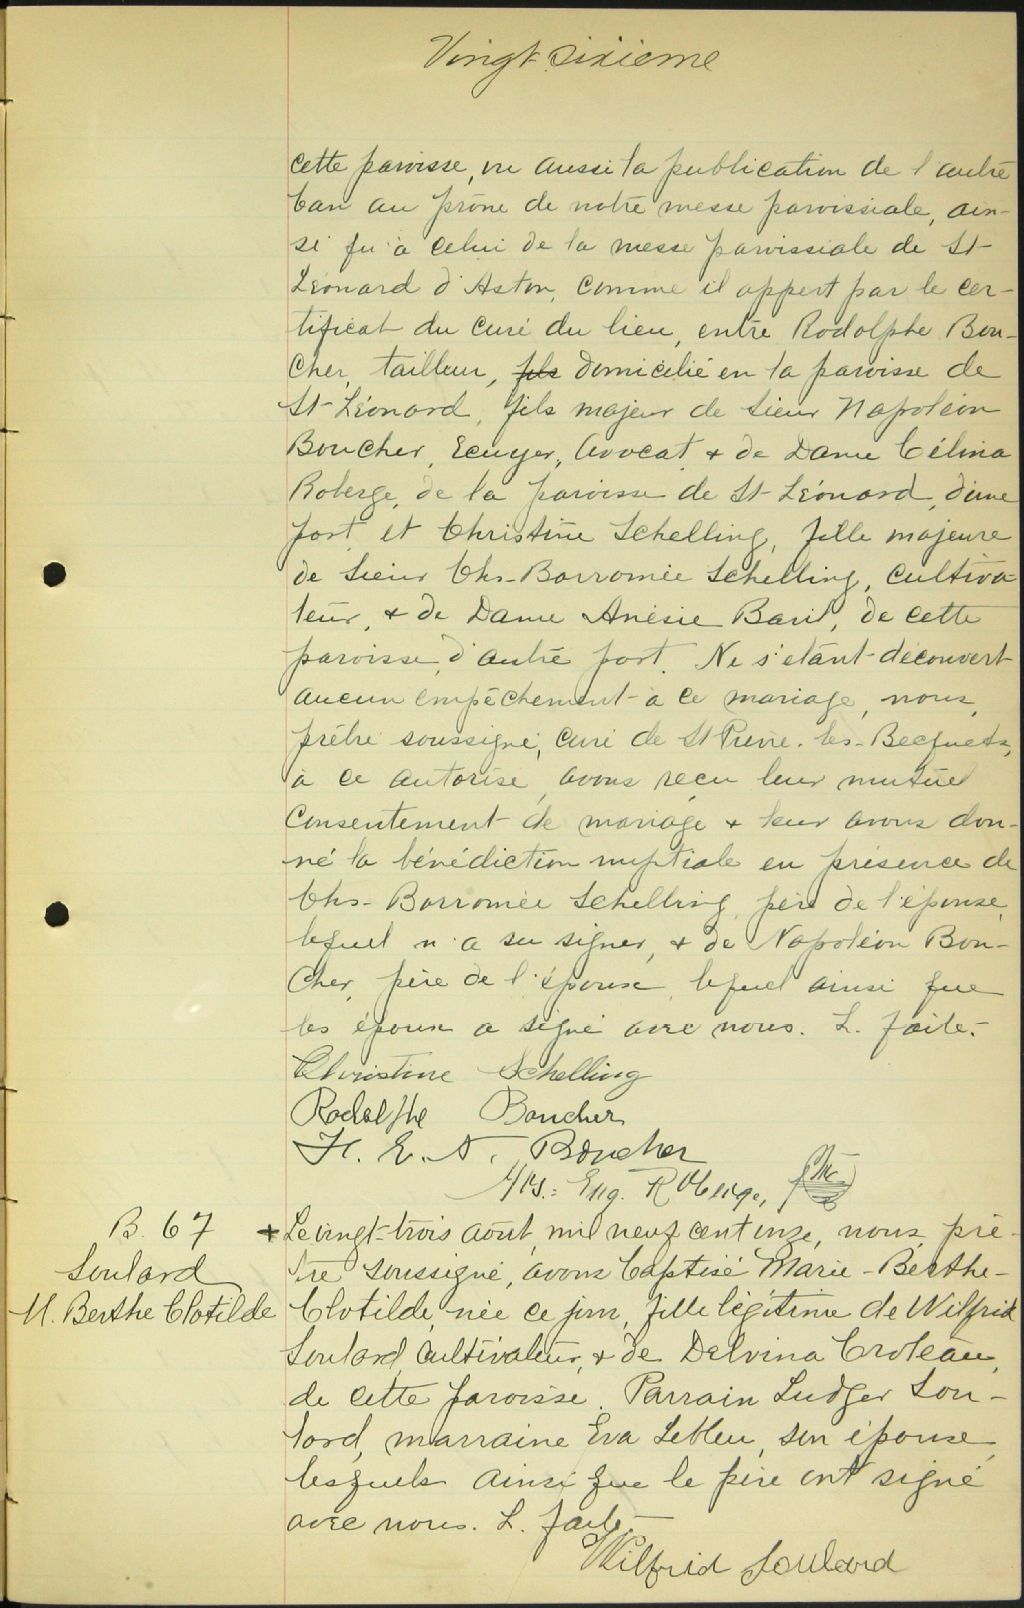 Vingt sixieme
cette paroisse, vu aussi la publication de l'autre
ban au prône de notre messe paroissiale, ain-
si qu'à celui de la messe paroissiale de St
Léonard d'Aston, comme il appert par le cer-
tificat du curé du lieu, entre Rodolphe Bou-
cher, tailleur, fils domicilié en la paroisse de
St-Léonard, fils majeur de Sieur Napoléon
Boucher, Ecuyer, Avocat, + de Dame Célina
Roberge, de la paroisse de St-Léonard, d'une
part, et Christine Schelling, fille majeure
de Sieur Chs-Borromée Schelling, cultiva-
teur, + de Dame Anésie Baril, de cette
paroisse, d'autre part. Ne s'étant découvert
aucun empêchement à ce mariage, nous,
prêtre soussigné, curé de St Pierre-les-Becquets,
à ce autorisé, avons reçu leur mutuel
consentement de mariage + leur avons don-
né la bénédiction nuptiale en présence de
Chs-Borromée Schelling, père de l'épouse,
lequel n'a su signer, + de Napoléon Bou-
cher, père de l'époux, lequel ainsi que
les époux a signé avec nous. L. faite.-
Christine Schelling
Rodolphe Boucher
H. E. N. Boucher
Eug. Roberge,
B. 67
Soulard
M. Berthe Clotilde
+ Le vingt-trois août, mil neuf cent onze, nous, prê-
tre soussigné, avons baptisé Marie-Berthe-
Clotilde, née ce jour, fille légitime de Wilfrid
Soulard, cultivateur, + de Delvina Croteau,
de cette paroisse. Parrain Ludger Sou-
lard, marraine Eva Lebleu, son épouse,
lesquels ainsi que le père ont signé
avec nous. L. faite.-
Wilfrid Soulard